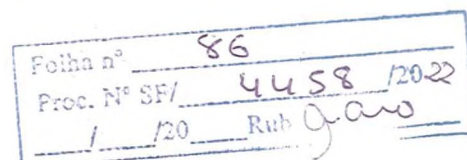 Folha nº 86
Proc. Nº SF/ 4458 /2022
/ /20 Rub